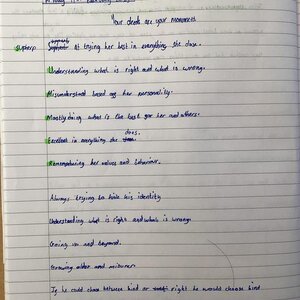 Your deeds are your monuments
Superp At trying her best in everything she does.
Understanding what is right and what is wrong.
Misunderstood based og her personality.
Mostly doing what is the best gor her and others.
Excellent in everything she does.
Remembering her values and behaviour.
Always trying to hide his identity
Understanding what is right and whats is wrong.
Going up and beyond.
Growing older and
If he could chose between kind or right he would choose kind